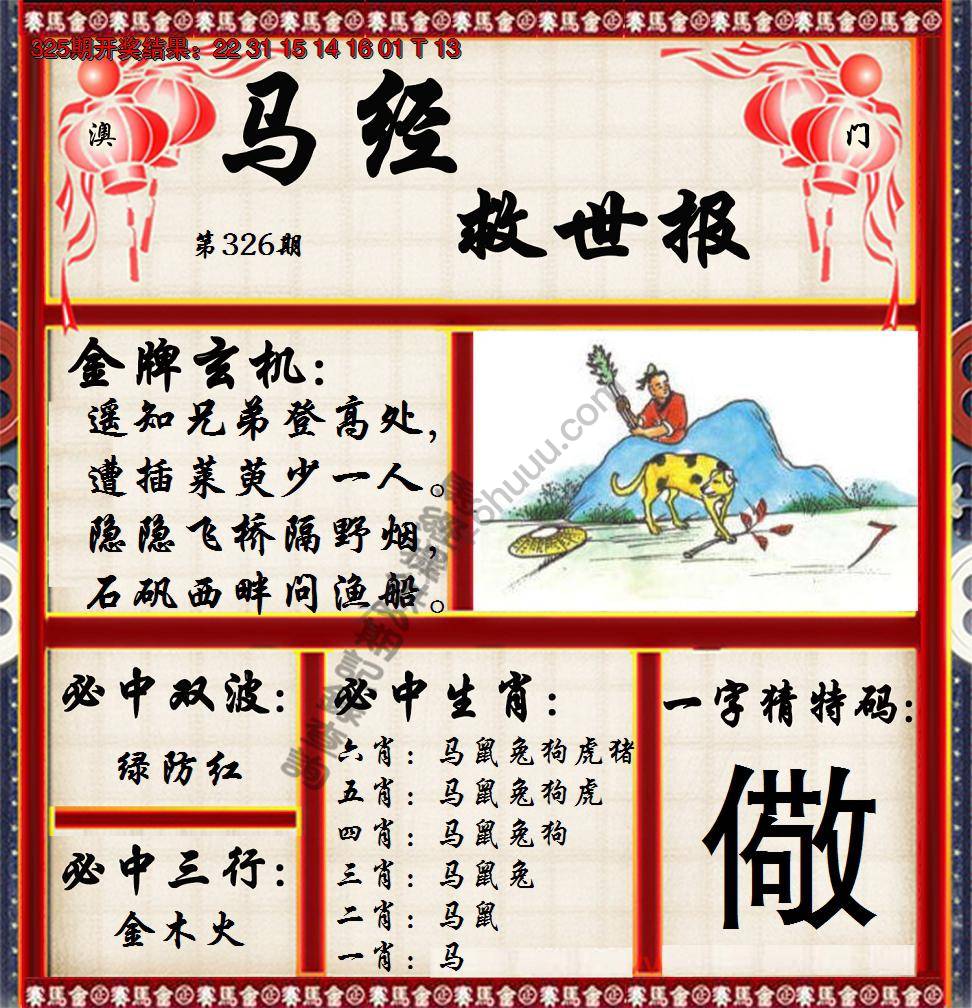 325期开奖结果：22 31 15 14 16 01 T 13
澳
门
马经
救世报
第326期
金牌玄机：
遥知兄弟登高处，
遭插莱萸少一人。
隐隐飞桥隔野烟，
石矶西畔问渔船。
必中双波：
绿防红
必中三行：
金木火
必中生肖：
六肖：马鼠兔狗虎猪
五肖：马鼠兔狗虎
四肖：马鼠兔狗
三肖：马鼠兔
二肖：马鼠
一肖：马
一字猜特码：
儆